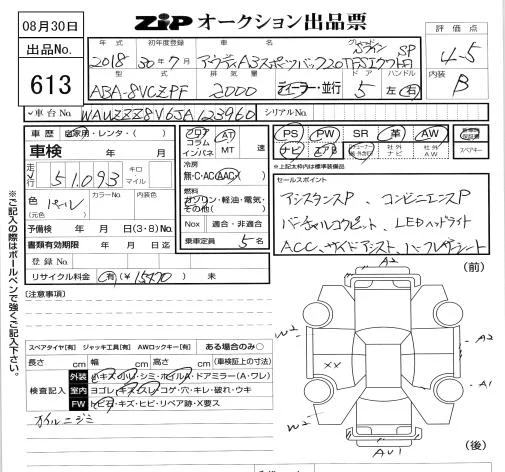 08月30日
ZIP オークション出品票
出品No.
613
年式 初年度登録 車名 グレード
2018 30年7月 アウディA3スポーツバック20TFSIクワトロ SP
型式 排気量 ドア ハンドル
ABA-8VCZPF 2000 ディーラー・並行 5 左 右
評価点
4-5
内装
B
車台No. WAUZZZ8V6JA123960 シリアルNo.
車歴 自家用・レンタ・( )
車検 年 月
走行 51,093 キロ マイル
色 パール カラーNo. 内装色
(元色)
予備検 年 月 日(3・8)No.
書類有効期限 年 月 日迄
登録No.
リサイクル料金 有(¥15470) 未
フロア コラム インパネ AT MT 速
冷房
無・C・AC・AAC
燃料
ガソリン・軽油・電気・その他( )
Nox 適合・非適合
乗車定員 5名
PS PW SR 革 AW
ナビ エアB 社外ナビ 社外AW スペアキー
※上記太枠内は標準装備品
セールスポイント
アシスタンスP、コンビニエンスP
バーチャルコクピット、LEDヘッドライト
ACC、サイドアシスト、ハーフレザーシート
※ご記入の際はボールペンで強くご記入下さい。
[注意事項]
スペアタイヤ[有] ジャッキ工具[有] AWロックキー[有] ある場合のみ○
長さ cm 幅 cm 高さ cm (車検証上の寸法)
検査記入
外装 ハキズ・小U・シミ・ホイルA・ドアミラー(A・ワレ)
室内 ヨゴレ・キズ・スレ・コゲ・穴・キレ・破れ・ウキ
FW トビ石・キズ・ヒビ・リペア跡・X要ス
オイルニジミ
(前)
A2
W2
A2
XX
A1
W2
AU1
(後)